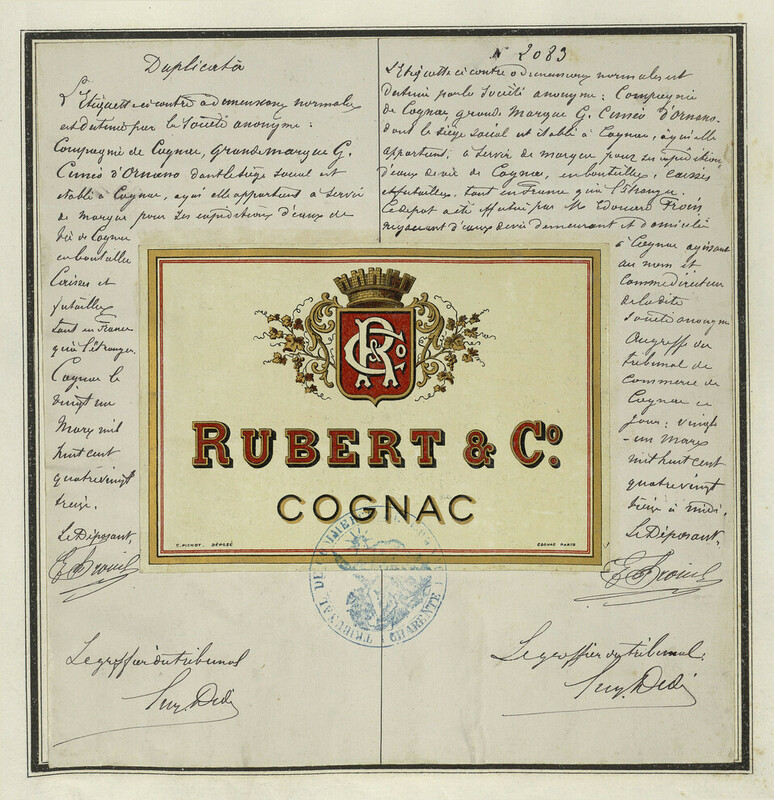 Duplicata
L'Etiquette ci contre a dimensions normales
est detenue par la Société anonyme :
Compagnie de Cognac, grande marque G.
Cunéo d'Ornano dont le siège social est
établi à Cognac, à qui elle appartient à servir
de marque pour ses expéditions d'eaux de
vie de Cognac
en bouteilles
Caisses et
futailles
tant en France
qu'à l'étranger.
Cognac le
vingt un
Mars mil
huit cent
quatre vingt
treize.
Le Déposant,
Le greffier du tribunal
N° 2083
L'Etiquette ci contre a dimensions normales est
detenue par la Société anonyme : Compagnie
de Cognac, grande Marque G. Cunéo d'Ornano.
dont le siège social est établi à Cognac, à qui elle
appartient, à servir de marque pour ses expéditions
d'eaux de vie de Cognac, en bouteilles, caisses
et futailles, tant en France qu'à l'étranger.
Ce dépôt a été effectué par Mr Edouard Froin
négociant d'eaux de vie demeurant et domicilié
à Cognac agissant
au nom et
comme directeur
de la dite
Société anonyme
Au greffe du
tribunal de
Commerce de
Cognac ce
jour : vingt
-un Mars
mil huit cent
quatre vingt
treize à midi.
Le Déposant,
E Froin
Le greffier du tribunal.
R & Co
RUBERT & Co.
COGNAC
C. PICHOT. DÉPOSÉ
COGNAC PARIS
TRIBUNAL DE COMMERCE
CHARENTE